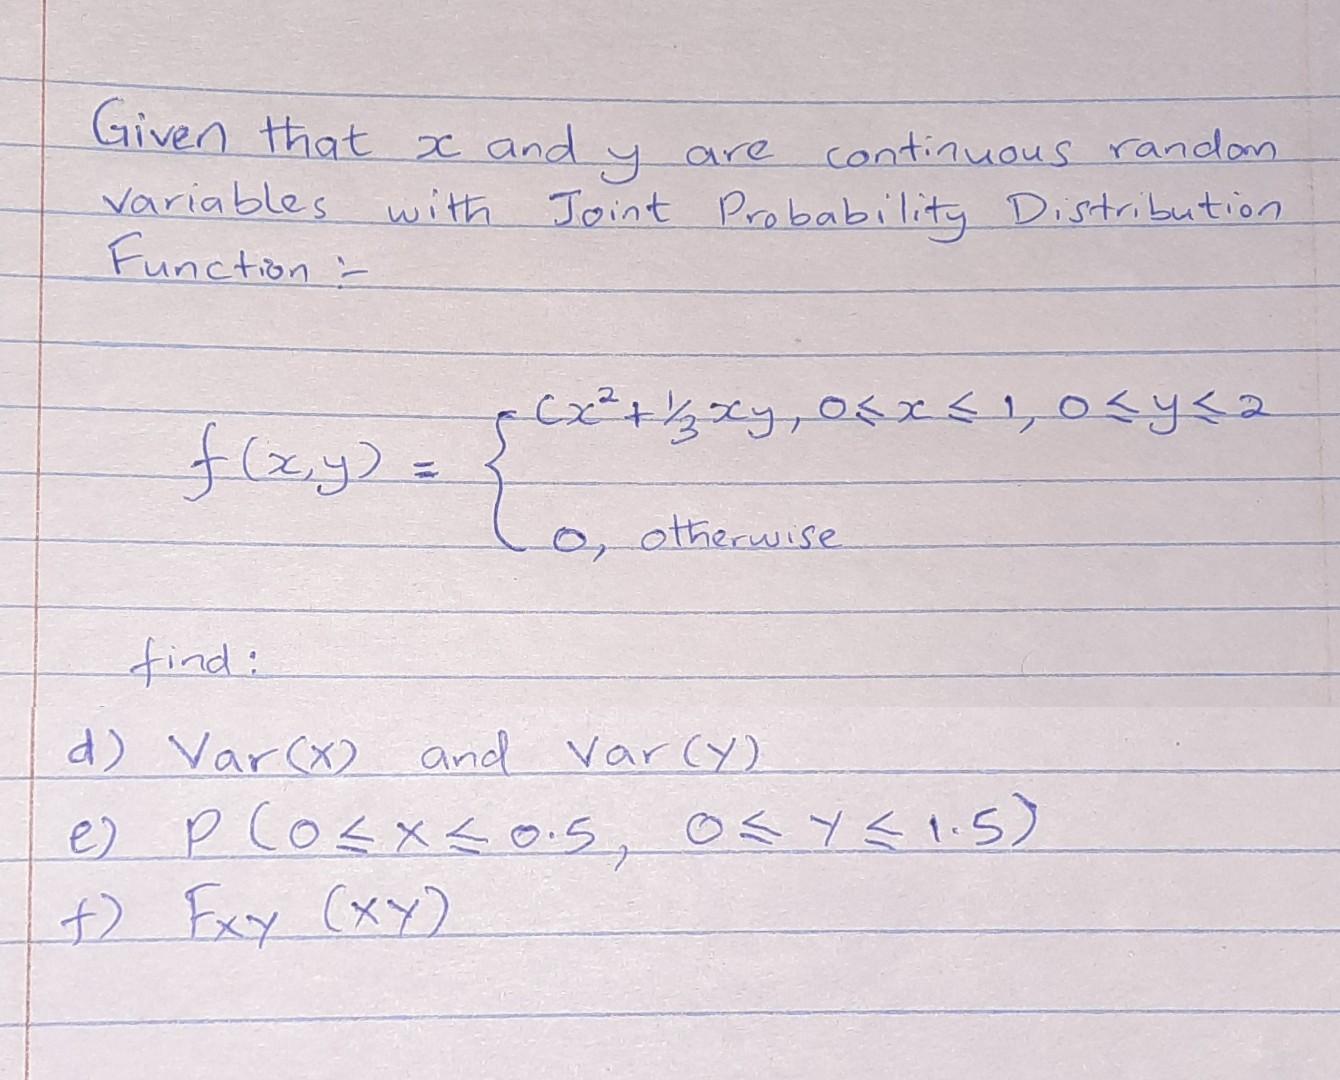 Given that x and y are continuous random
variables with Joint Probability Distribution
Function :-
f(x,y) = { Cx² + ⅓xy, 0 ≤ x ≤ 1, 0 ≤ y ≤ 2
0, otherwise
find:
d) Var(X) and Var(Y)
e) P(0 ≤ X ≤ 0.5, 0 ≤ Y ≤ 1.5)
f) Fxy (XY)